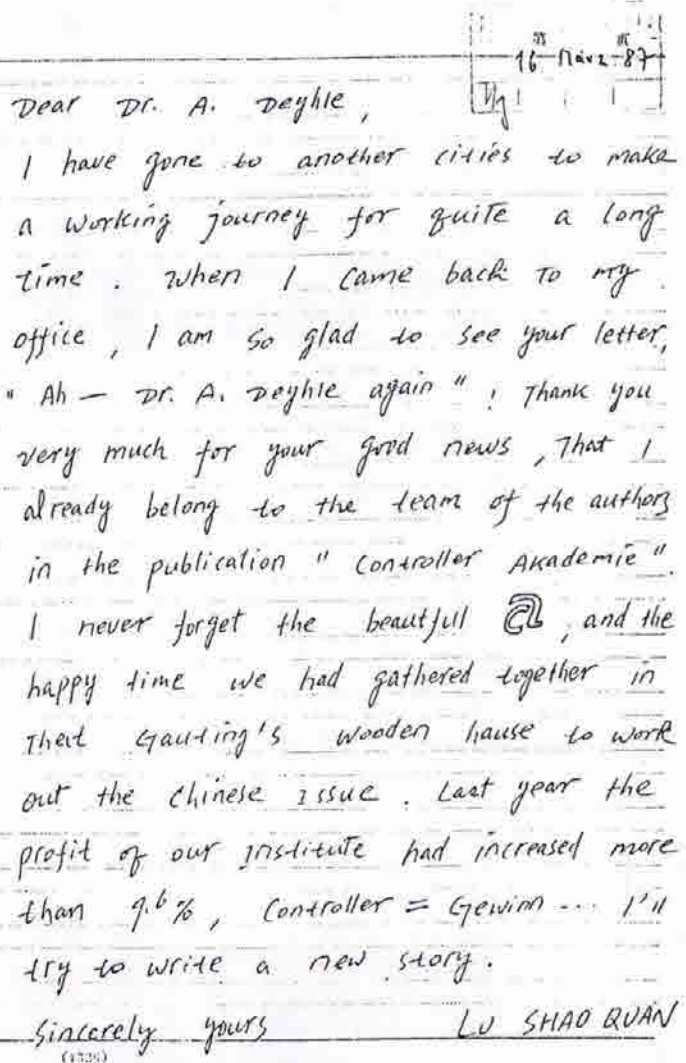 16 März 87
Dear Dr. A. Deyhle,
I have gone to another cities to make
a working journey for quite a long
time. When I came back to my
office, I am so glad to see your letter,
"Ah — Dr. A. Deyhle again"! Thank you
very much for your good news, That I
already belong to the team of the authors
in the publication "Controller Akademie".
I never forget the beautful a, and the
happy time we had gathered together in
That Gauting's wooden hause to work
out the Chinese issue. Last year the
profit of our institute had increased more
than 9.6%, Controller = Gewinn ... I'll
try to write a new story.
Sincerely yours LU SHAO QUAN